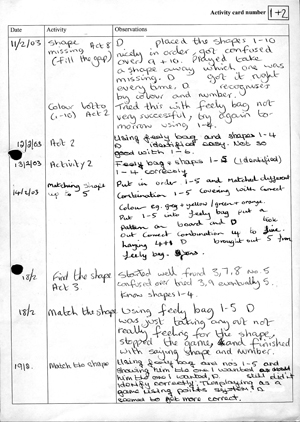 Activity card number 1+2
Date Activity Observations
11/2/03 Shape Act 8 D placed the shapes 1-10
missing nicely in order, got confused
(-Fill the gap) over 9+10. Played take
a shape away which one was
missing. D got it right
every time. D recognises
by colour and number.
Colour lotto Tried this with feely bag not
(1-10) Act 2 very successful, try again to-
morrow using 1-4.
12/2/03 Act 2 Using feely bag and shapes 1-4
D identified easy. Not so
good with 1-6.
13/2/03 Activity 2 Feely bag + shapes 1-5 (identified)
1-4 correctly
14/2/03 Matching Shape Put in order 1-5 and matched different
up to 5 combination 1-5 covering with correct
colour eg. grey + yellow / green + orange.
Put 1-5 into feely bag put a
pattern on board and D took
out correct combination up to five.
having 4+1 D brought out 5 from
feely bag.
18/2 Find the shape Started well found 3,7,8 No. 5
Act 3 confused over tried 3,9 eventually 5.
Know shapes 1-4.
18/2 Match the shape Using feely bag 1-5 D
was just taking any out not
really feeling for the shape,
stopped the game and finished
with saying shape and number.
19/8. Match the shape Using feely bag and nos 1-5 and
showing him the one I wanted
him the one I wanted. D still didn't
identify correctly. Tried playing as a
game using points system. D
seemed to get more correct.